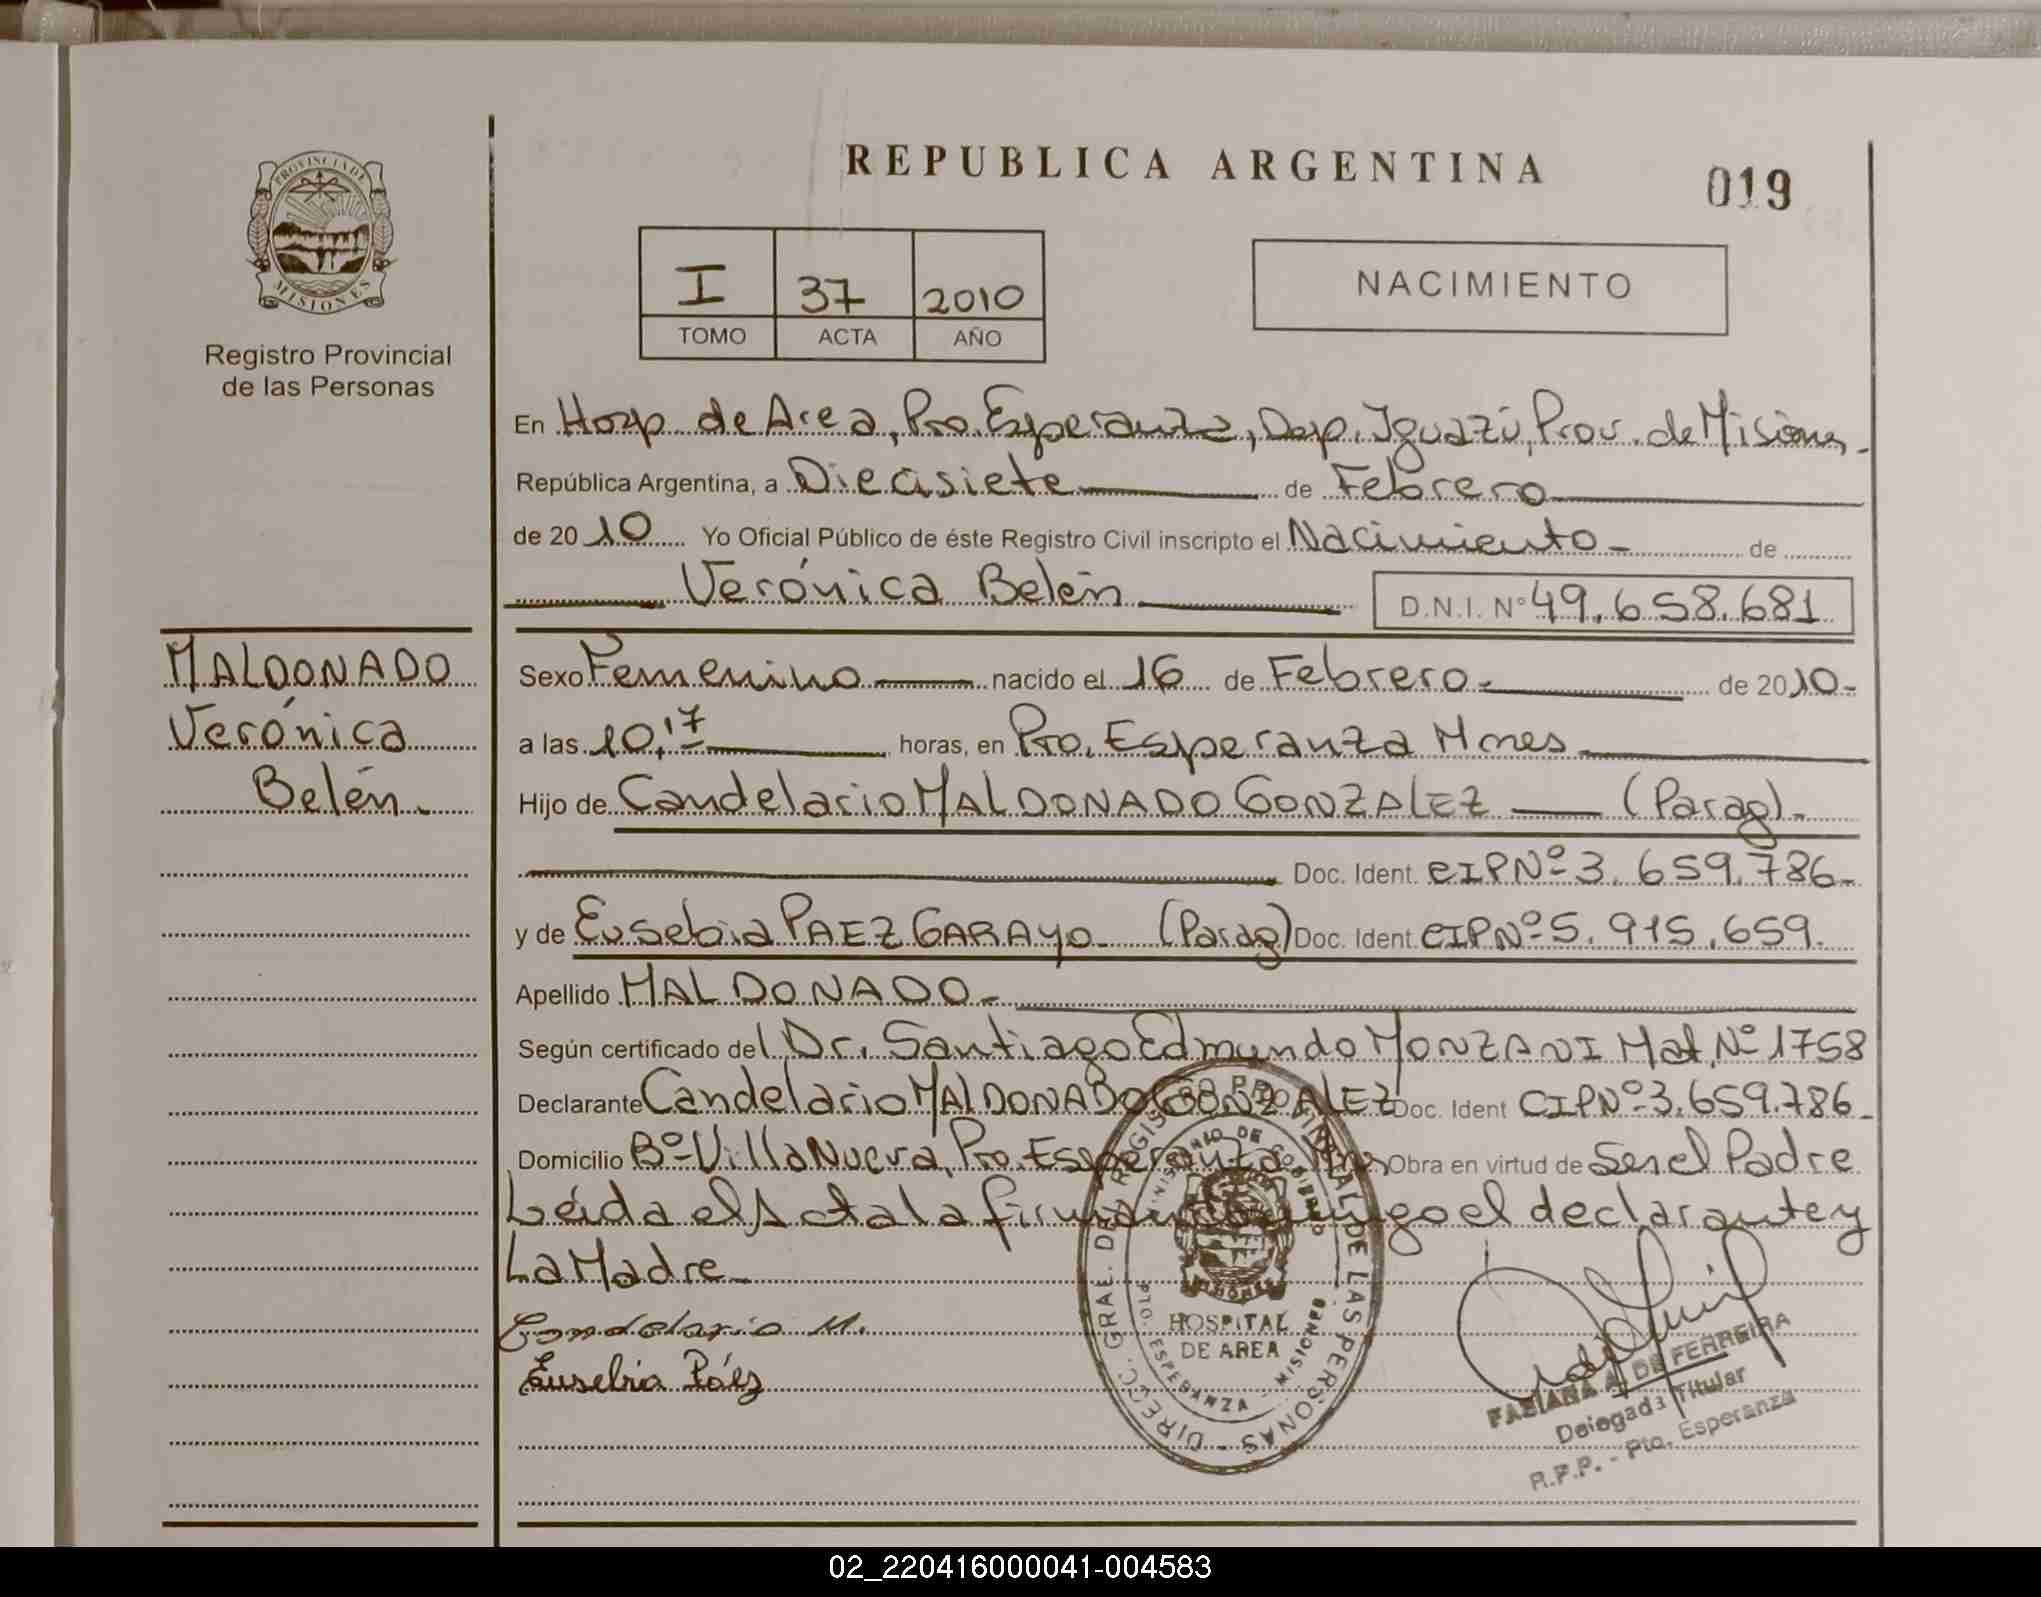 REPUBLICA ARGENTINA
019
PROVINCIA DE
MISIONES
Registro Provincial
de las Personas
I 37 2010
TOMO ACTA AÑO
NACIMIENTO
En Hosp de Area, Pto. Esperanza, Dep. Iguazú, Prov. de Misiones.
República Argentina, a Diecisiete de Febrero
de 2010 Yo Oficial Público de éste Registro Civil inscripto el Nacimiento - de
Verónica Belén D.N.I. Nº 49.658.681
MALDONADO
Verónica
Belén.
Sexo Femenino nacido el 16 de Febrero. de 2010-
a las 10,17 horas, en Pto. Esperanza Mnes
Hijo de Candelario MALDONADO GONZALEZ (Parag).
Doc. Ident. CIPNº 3.659.786-
y de Eusebia PAEZ GARAYO (Parag) Doc. Ident. CIPNº 5.915.659.
Apellido MALDONADO-
Según certificado del Dr. Santiago Edmundo MONZANI Mat. Nº 1758
Declarante Candelario MALDONADO GONZALEZ Doc. Ident CIPNº 3.659.786-
Domicilio Bº Villa Nueva, Pto. Esperanza Mnes Obra en virtud de Ser el Padre
Leída el Acta la firman conmigo el declarante y
La Madre-
Candelario M.
Eusebia Páez
DIREC. GRAL. DEL REGISTRO PROVINCIAL DE LAS PERSONAS
MINISTERIO DE GOBIERNO
MISIONES
HOSPITAL
DE AREA
PTO. ESPERANZA - MISIONES
FABIANA A. DE FERREIRA
Delegada Titular
R.P.P. - Pto. Esperanza
02_220416000041-004583